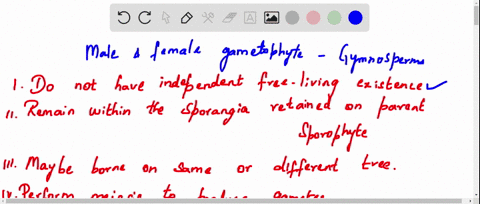 Male & female gametophyte - Gymnosperms
I. Do not have independent free-living existence ✓
II. Remain within the sporangia retained on parent
Sporophyte
III. Maybe borne on same or different tree.
IV. Perform meiosis to produce gametes